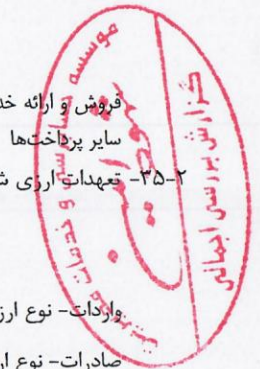 فروش و ارائه خد
سایر پرداخت‌ها
۳۵-۲- تعهدات ارزی ش
واردات- نوع ارز
صادرات- نوع ار
موسسه حسابرسی و خدمات مدیریت
گزارش بررسی اجمالی